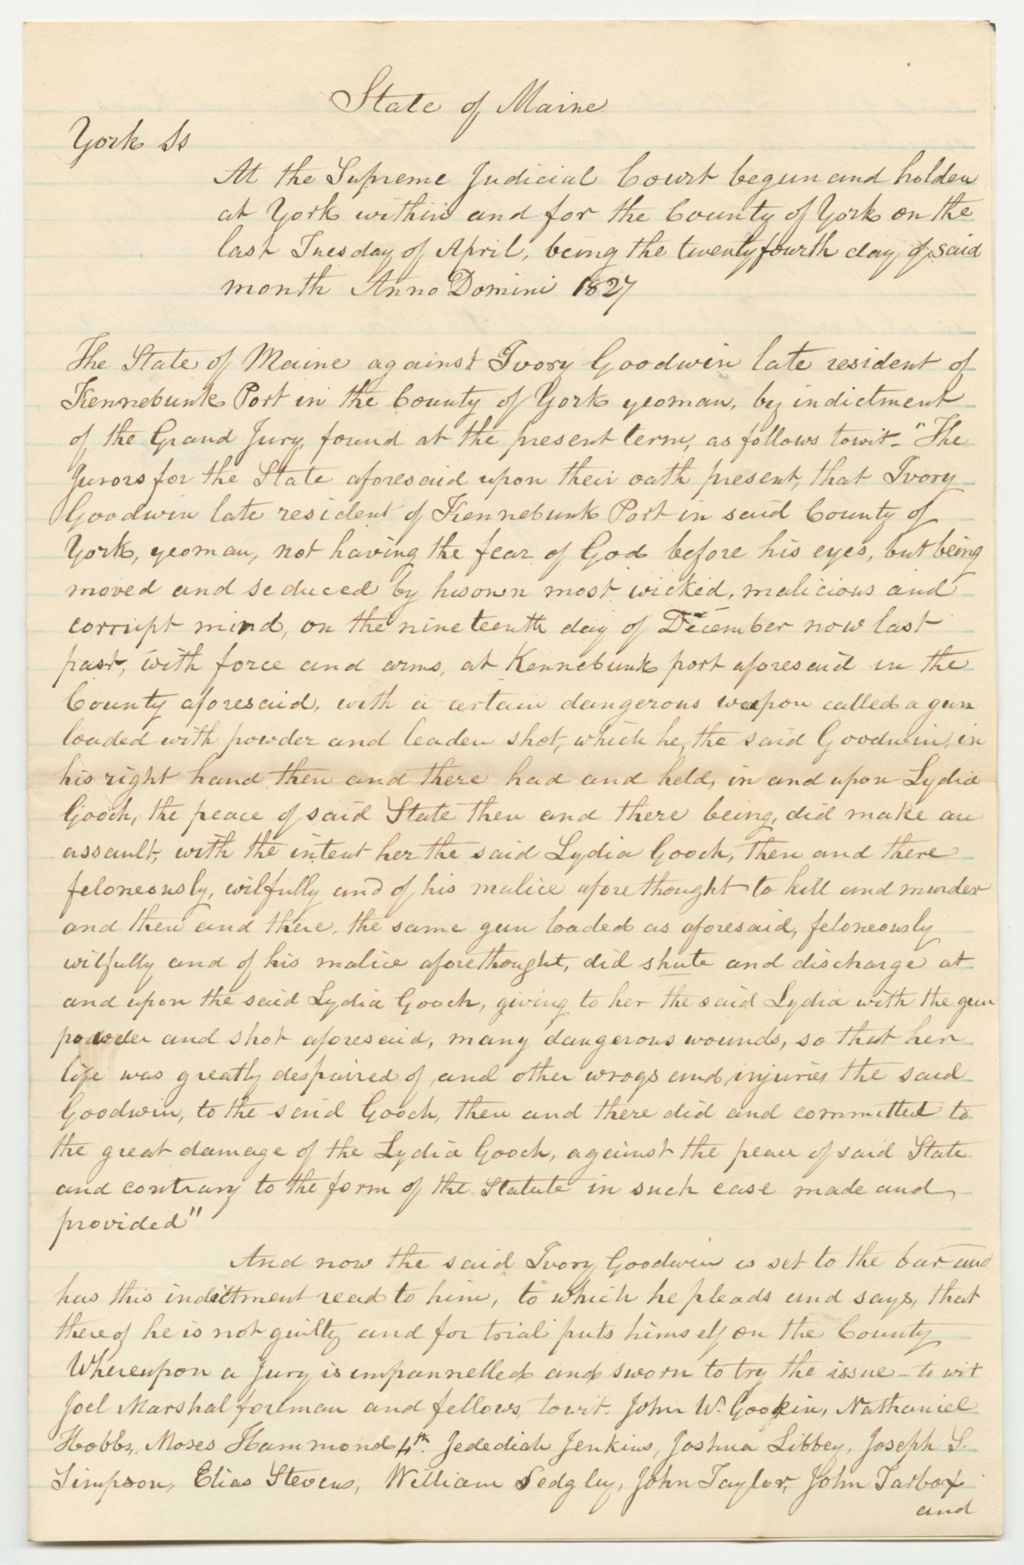 State of Maine
York Ss
At the Supreme Judicial Court begun and holden
at York within and for the County of York on the
last Tuesday of April, being the twenty fourth day of said
month Anno Domini 1827
The State of Maine against Ivory Goodwin late resident of
Kennebunk Port in the County of York yeoman, by indictment
of the Grand Jury, found at the present term, as follows towit - "The
Jurors for the State aforesaid upon their oath present, that Ivory
Goodwin late resident of Kennebunk Port in said County of
York, yeoman, not having the fear of God before his eyes, but being
moved and seduced by his own most wicked, malicious and
corrupt mind, on the nineteenth day of December now last
past, with force and arms, at Kennebunk port aforesaid in the
County aforesaid, with a certain dangerous weapon called a gun
loaded with powder and leaden shot, which he, the said Goodwin, in
his right hand then and there had and held, in and upon Lydia
Gooch, the peace of said State then and there being, did make an
assault, with the intent her the said Lydia Gooch, then and there
feloneously, wilfully and of his malice aforethought to kill and murder
and then and there, the same gun loaded as aforesaid, feloneously
wilfully and of his malice aforethought, did shute and discharge at
and upon the said Lydia Gooch, giving to her the said Lydia with the gun
powder and shot aforesaid, many dangerous wounds, so that her
life was greatly despaired of, and other wrogs and, injuries the said
Goodwin, to the said Gooch, then and there did and committed to
the great damage of the Lydia Gooch, against the peace of said State
and contrary to the form of the Statute in such case made and
provided"
And now the said Ivory Goodwin is set to the bar and
has this indittment read to him, to which he pleads and says, that
thereof he is not guilty and for trial puts himself on the County
Whereupon a Jury is impannelled and sworn to try the issue - to wit
Joel Marshal foreman and fellows towit. John W. Gookin, Nathaniel
Hobbs, Moses Hammond 4th. Jedediah Jenkins, Joshua Libbey, Joseph S.
Simpson, Elias Stevens, William Sedgley, John Taylor, John Tarbox
and